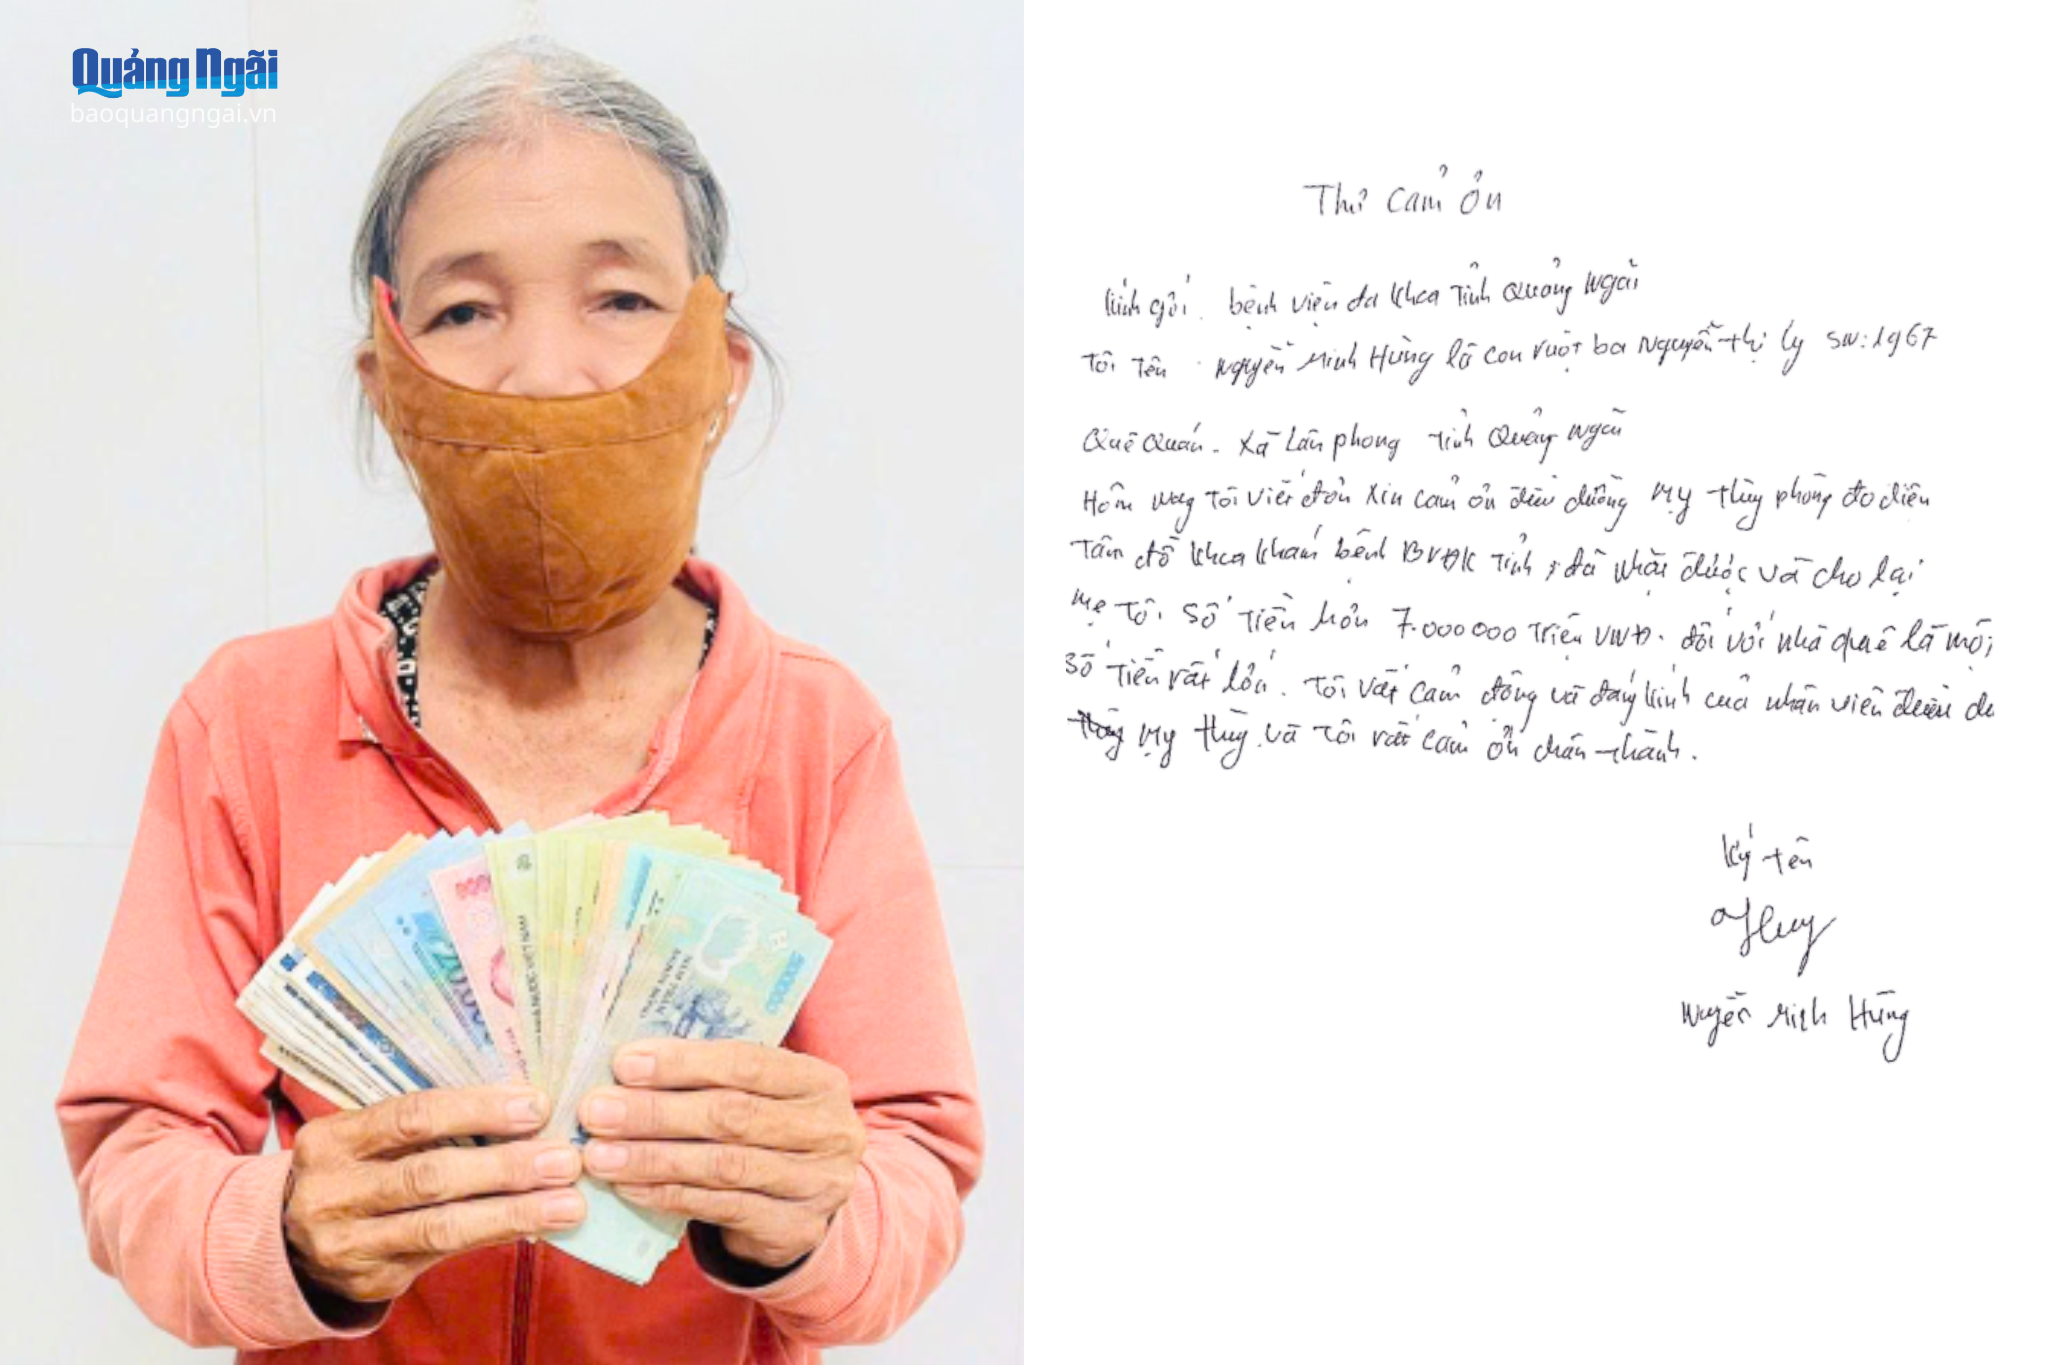 Quảng Ngãi
baoquangngai.vn
NHÀ NƯỚC VIỆT NAM
Thư cảm ơn
Kính gửi. bệnh viện đa khoa tỉnh Quảng Ngãi
Tôi tên Nguyễn Minh Hùng là con ruột bà Nguyễn Thị Ly SN: 1967
Quê Quán - Xã Lân phong tỉnh Quảng Ngãi
Hôm nay tôi viết đơn xin cảm ơn điều dưỡng Mỵ Thùy phòng đo điện
Tâm đồ khoa khám bệnh BVĐK tỉnh, đã nhặt được và cho lại
mẹ tôi số tiền hơn 7.000000 triệu VNĐ. đối với nhà quê là một
số tiền rất lớn. Tôi rất cảm động và đáng kính của nhân viên điều
Mỵ Thùy và tôi rất cảm ơn chân thành.
Ký tên
Nguyễn Minh Hùng